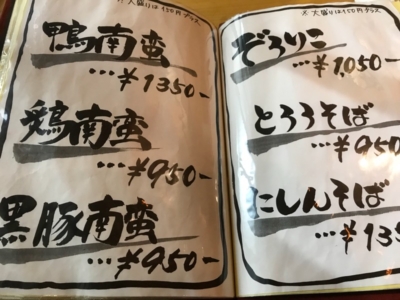 ※大盛りは150円プラス
鴨南蛮
…¥1350-
鶏南蛮
…¥950-
黒豚南蛮
…¥950-
※大盛りは150円プラス
ぞろりこ
…¥1,050-
とろろそば
…¥950-
にしんそば
…¥135